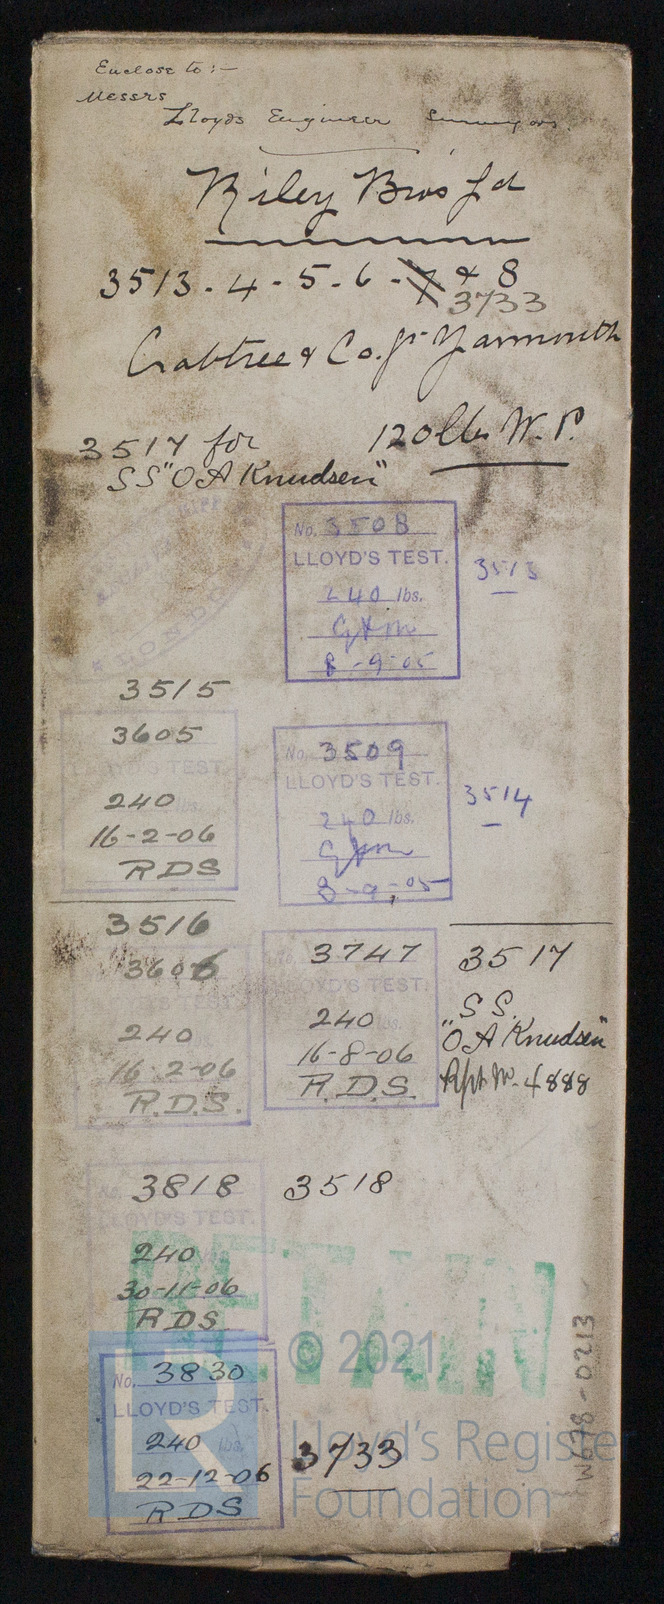 Enclose to :-
Messrs
Lloyds Engineer Surveyors.
Riley Bros Ld
3513 - 4 - 5 - 6 - 7 & 8
3733
Crabtree & Co. Gt Yarmouth
3517 for
120 lbs W.P.
SS "O A Knudsen"
LONDON
No. 3508
LLOYD'S TEST.
240 lbs.
8-9-05
3513
3515
3605
LLOYD'S TEST.
240 lbs.
16-2-06
RDS
No. 3509
LLOYD'S TEST.
240 lbs.
8-9-05
3514
3516
3606
LLOYD'S TEST.
240
16-2-06
R.D.S.
No. 3747
LLOYD'S TEST.
240 lbs.
16-8-06
R.D.S.
3517
S S.
"O A Knudsen"
Rpt No. 4888
No. 3818
LLOYD'S TEST.
240 lbs.
30-11-06
RDS
3518
RETAIN
No. 3830
LLOYD'S TEST.
240 lbs.
22-12-06
RDS
3733
© 2021
Lloyd's Register
Foundation
W678-0213